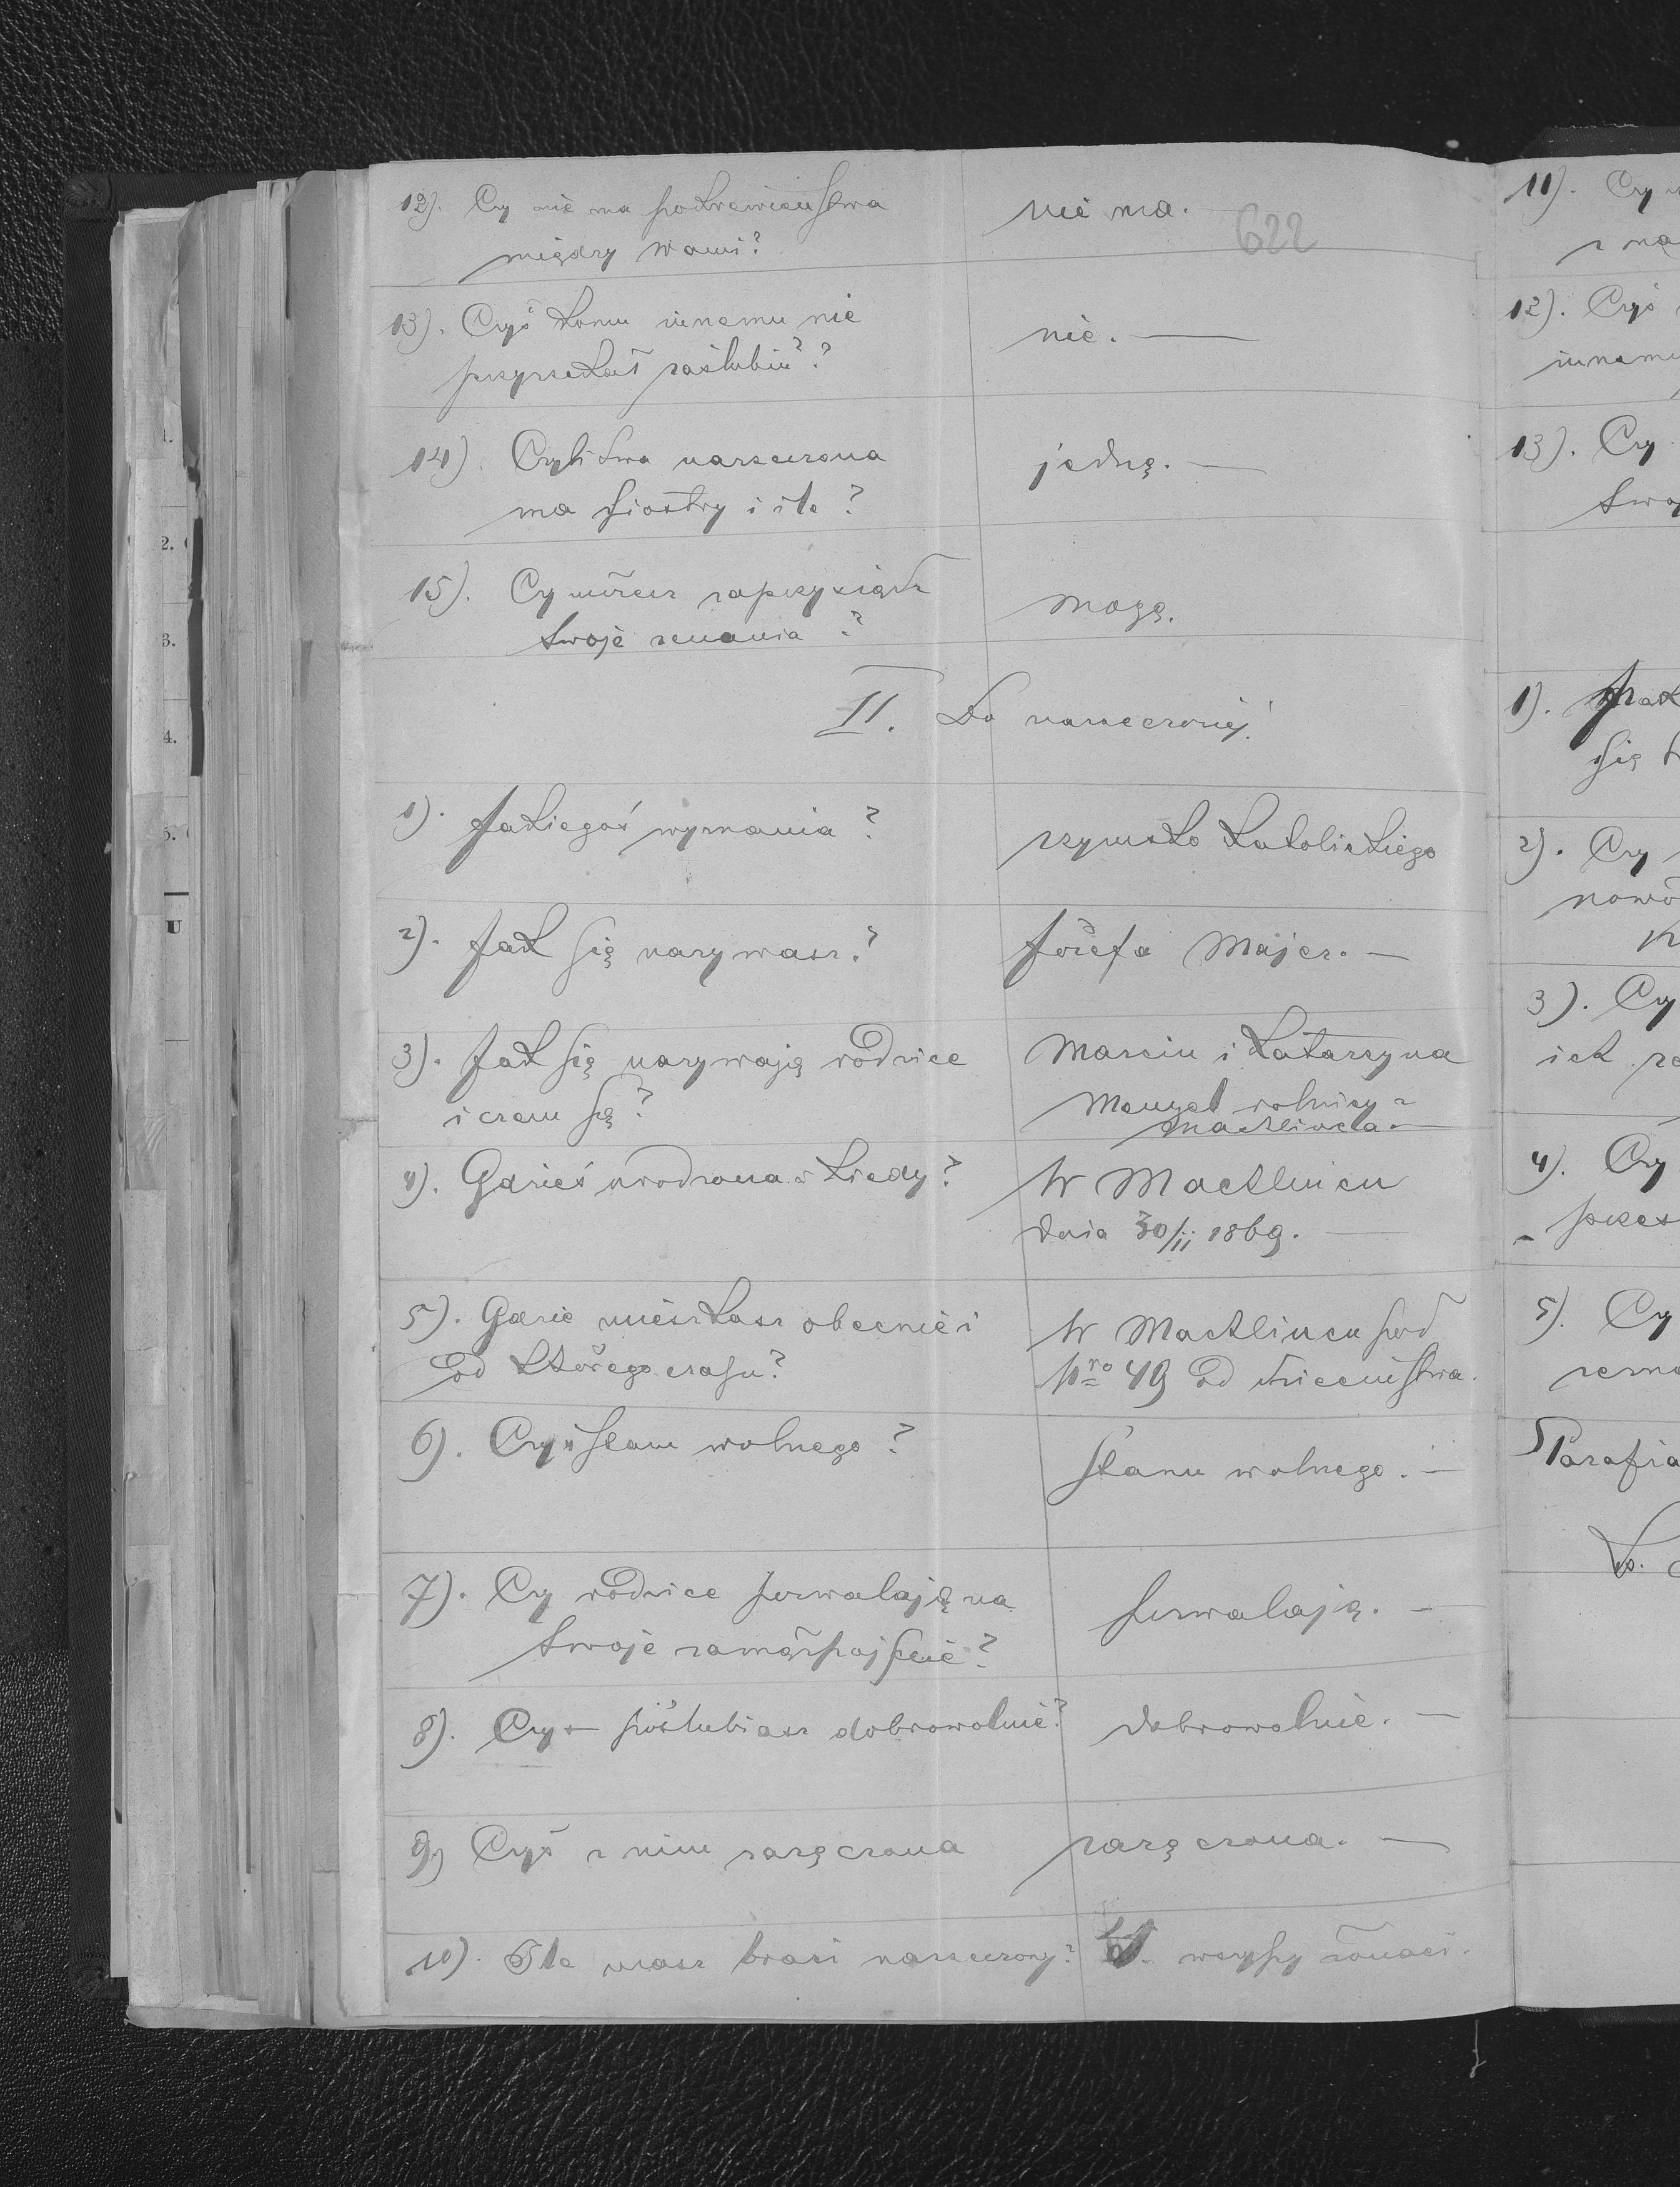 622
12). Czy nie ma pokrewieństwa
między wami?
nie ma.
13). Czyś komu innemu nie
przyrzekał zaślubin?
nie. —
14). Czyli twa narzeczona
ma siostry i ile?
jedną. —
15). Czy możesz zaprzysiądz
twoje zeznania?
mogę.
II. Do narzeczonéj.
1). Jakiegoś wyznania?
rzymsko katolickiego
2). Jak się nazywasz?
Józefa Majer. —
3). Jak się nazywają rodzice
i czem są?
Marcin i Katarzyna
rolnicy z
Machlińca —
4). Gdzieś urodzona i kiedy?
W Machlińcu
dnia 30/11 1869. —
5). Gdzie mieszkasz obecnie i
od którego czasu?
W Machlińcu pod
Nro 49 od dzieciństwa.
6). Czyś stanu wolnego?
Stanu wolnego. —
7). Czy rodzice pozwalają na
twoje zamążpójście?
pozwalają. —
8). Czy poślubiasz dobrowolnie?
dobrowolnie. —
9) Czyś z nim zaręczona
zaręczona. —
10). Ile masz braci narzeczony?
wszyscy żonaci.
11). Czy
z na
12). Czyś
innemu
13). Czy
twoj
1).
się
2). Czy
nowo
3). Czy
ich
4). Czy
przes
5). Czy
zezna
Parafia